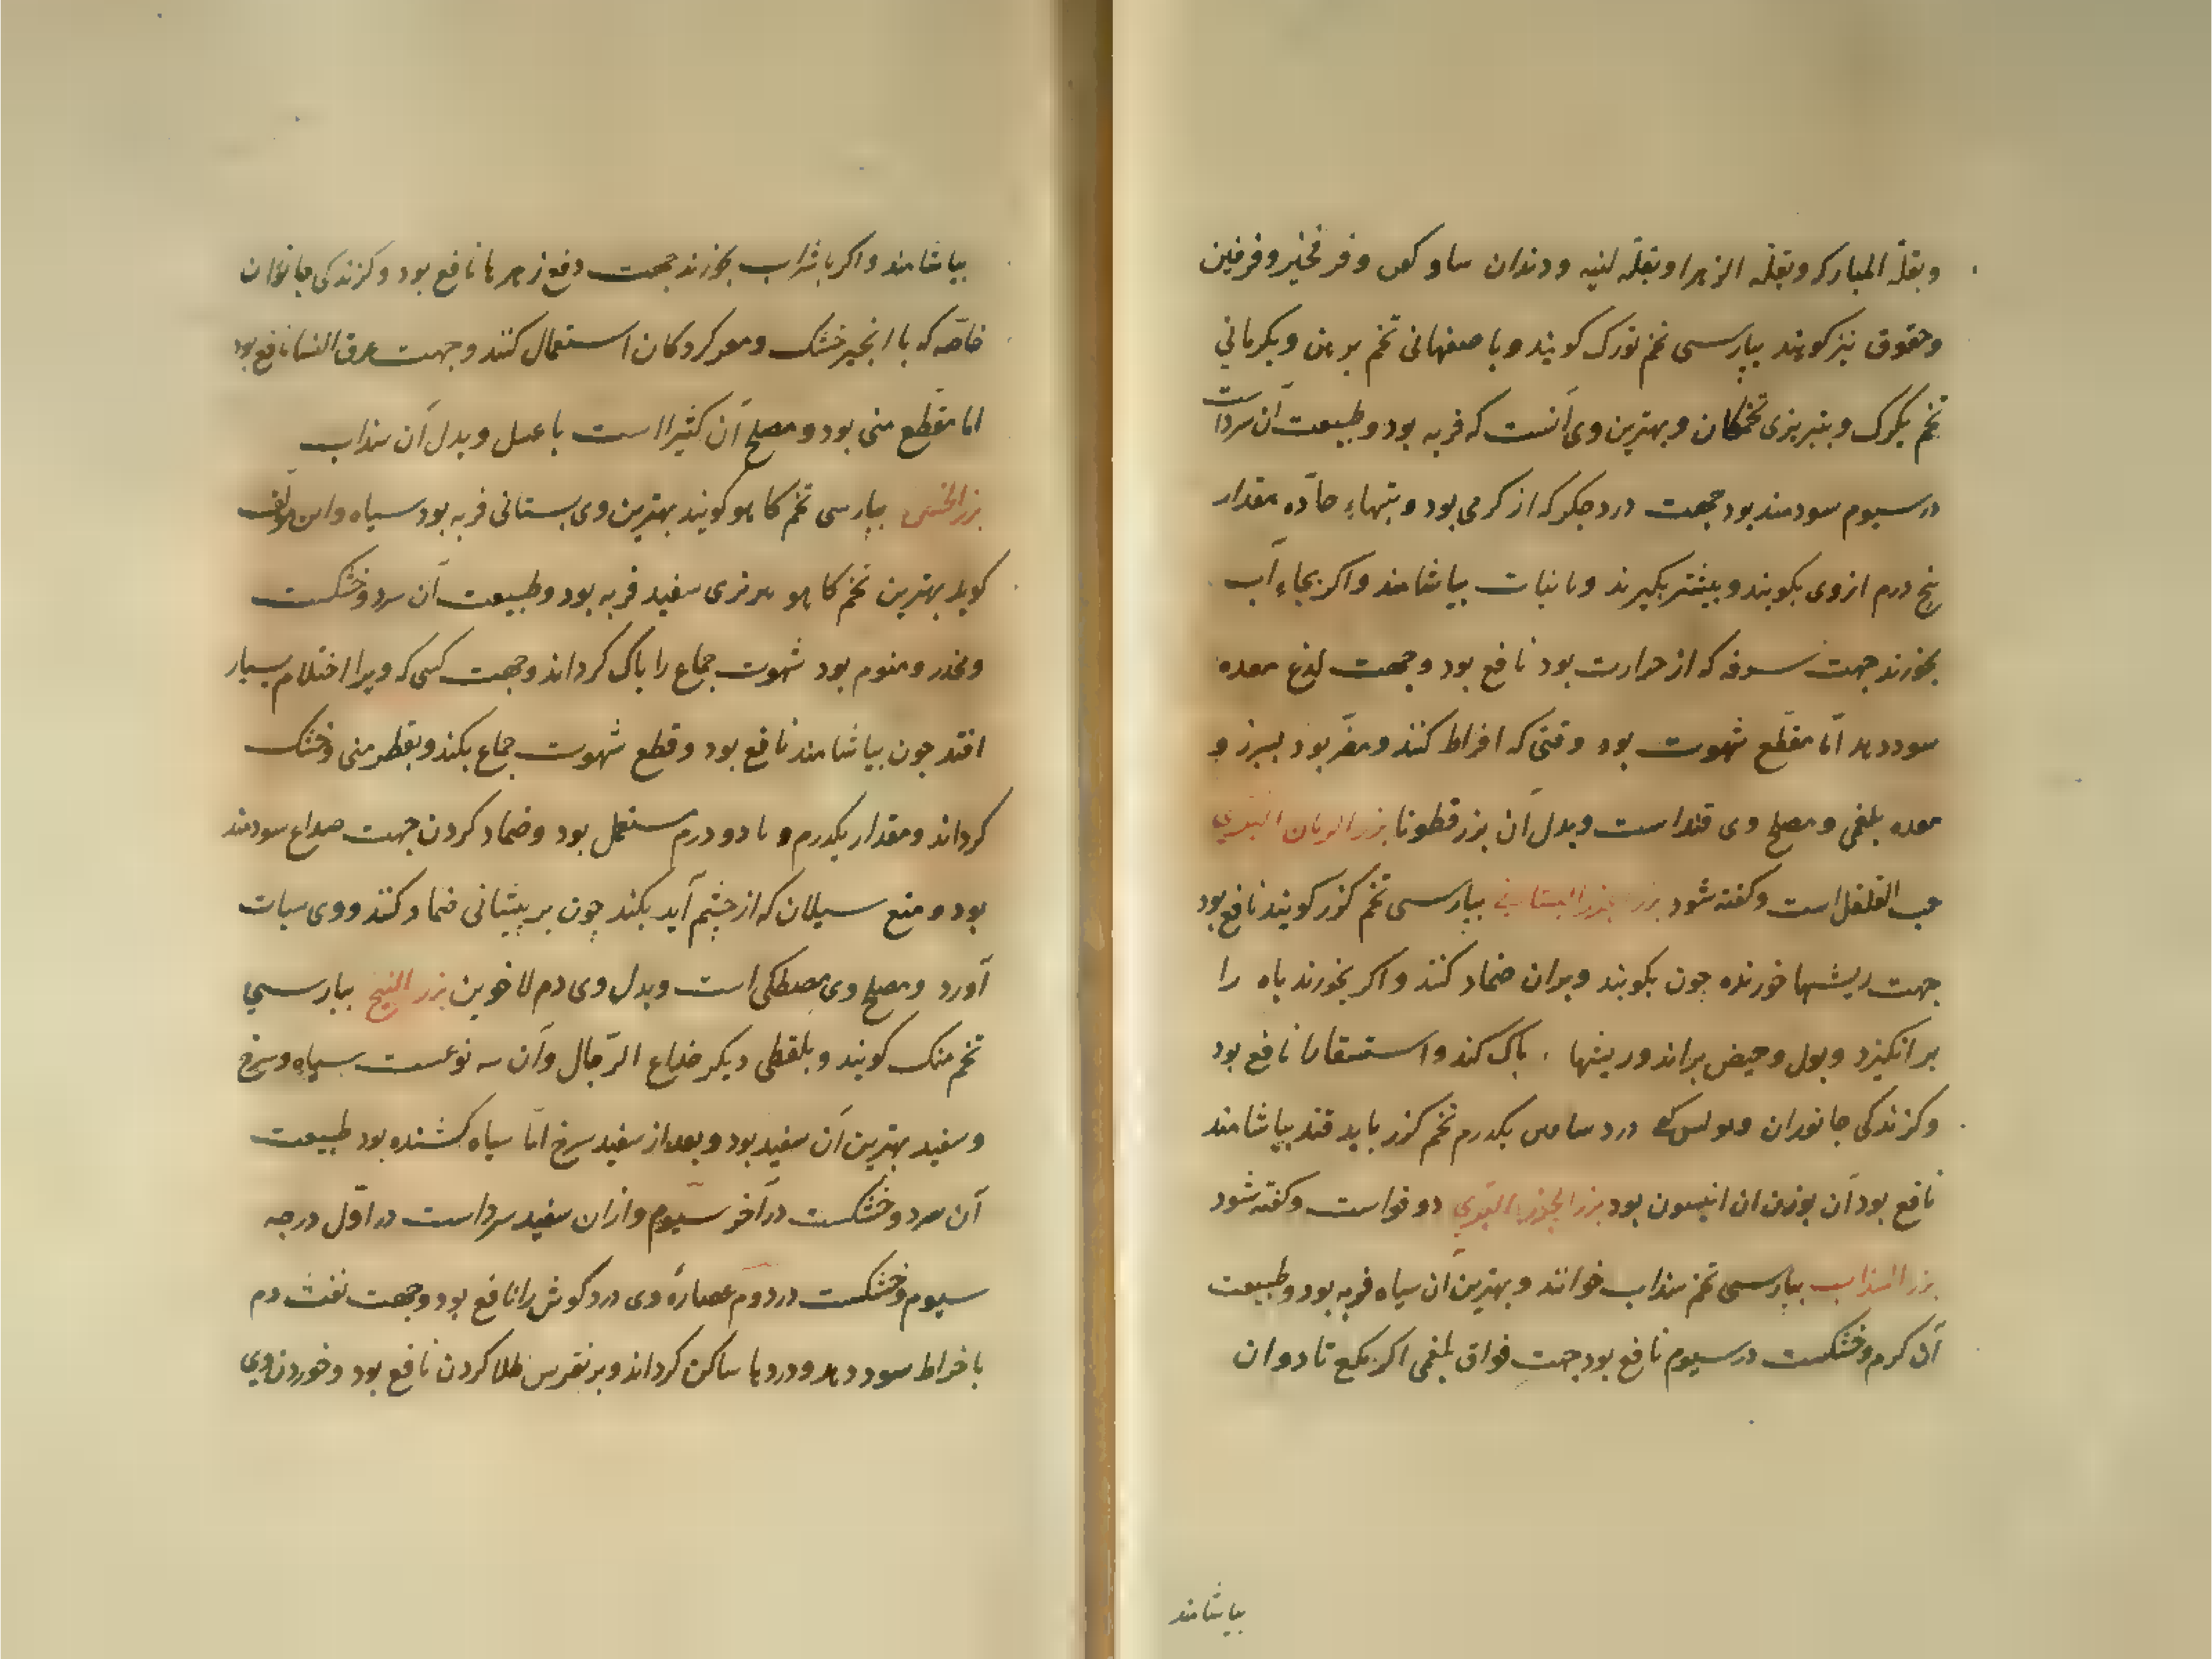 وبقلة المبارکه وبقلة الزهرا وبقلة لنیه ودندان ساو وفرفخیر وفرفین
وحقوق نیز کویند بپارسی تخم تورک کویند وباصفهانی تخم برهن وبکرمانی
تخم بکرک وبتبریزی تخمکان وبهترین وی آنست که فربه بود وطبیعت آن سرداست
درسیوم سودمند بود جهت درد جکر که از کرمی بود وتبهاء حادّه مقدار
پنج درم ازوی بکوبند وبیشتر بکیرند وبا نبات بیاشامند واکر بجاء آب
بخورند جهت سرفه که از حرارت بود نافع بود وجهت لذع معده
سود دهد امّا مقطّع شهوت بود وقتی که افراط کنند ومضر بود بسپرز و
معده بلغمی ومصلح وی قنداست وبدل آن بزر قطونا بزر الرمان البری
حب القلقل است وکفته شود بزر الجزر البستانی بپارسی تخم کزر کویند نافع بود
جهت ریشها خورنده چون بکوبند وبران ضماد کنند واکر بخورند باه را
برانکیزد وبول وحیض براند وریشها پاک کند واستسقا را نافع بود
وکزندکی جانوران درد یکدرم تخم کزر باید قند بیاشامند
نافع بود آن بوزن ان انیسون بود بزر الجزر البری دوقواست وکفته شود
بزر السذاب بپارسی تخم سذاب خوانند وبهترین آن سیاه فربه بود وطبیعت
آن کرم وخشکست درسیوم نافع بود جهت فواق بلغمی اکر یکمع تا دو ان
بیاشامند
بیاشامند واکر باشراب بخورند جهت دفع زهرها نافع بود وکزندکی جانوران
خاصّه که با انجیر خشک ومغز کردکان استعمال کنند وجهت عرق النسا نافع بود
اما مقطّع منی بود ومصلح آن کثیرا است با عسل وبدل آن سذاب
بزر الخس بپارسی تخم کاهو کویند بهترین وی بستانی فربه بود سیاه واین مؤلف
کوید بهترین تخم کاهو هرمزی سفید فربه بود وطبیعت آن سرد وخشکست
ومخدر ومنوم بود شهوت جماع را پاک کرداند وجهت کسی که ویرا احتلام بسیار
افتد چون بیاشامند نافع بود وقطع شهوت جماع بکند وبقطر منی وخشک
کرداند ومقدار یکدرم و تا دو درم مستعمل بود وضماد کردن جهت صداع سودمند
بود ومنع سیلان که از چشم آید بکند چون بر پیشانی ضماد کنند ووی سبات
آورد ومصلح وی مصطکی است وبدل وی دم لاخوین بزر البنج بپارسی
تخم منک کویند وبلفظی دیکر خداع الرّجال وآن سه نوعست سیاه وسرخ
وسفید بهترین آن سفید بود وبعد از سفید سرخ امّا سیاه کشنده بود طبیعت
آن سرد وخشکست در آخر سیوم وازان سفید سرداست در اوّل درجه
سیوم وخشکست در دوم عصاره وی درد کوش را نافع بود وجهت نفث دم
بافراط سود دهد ودردها ساکن کرداند وبر نقرس طلا کردن نافع بود وخوردن وی